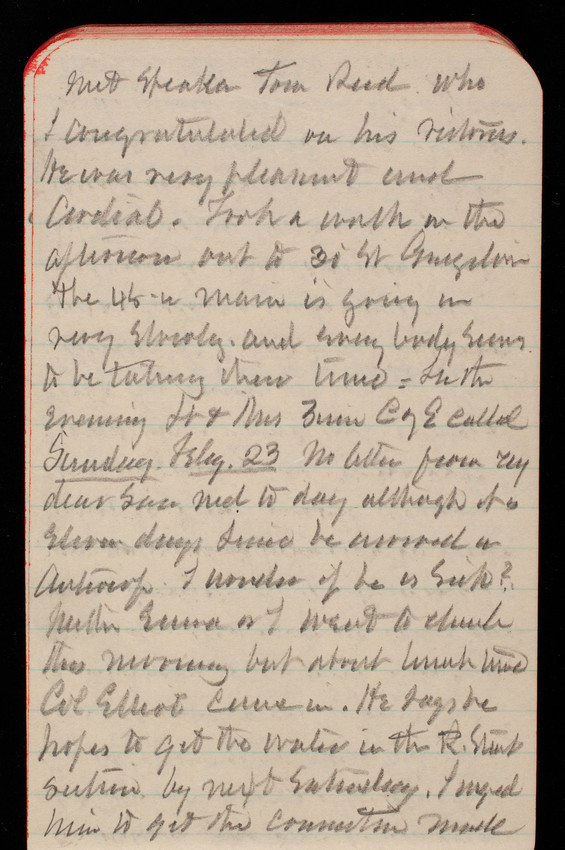 met Speaker Tom Reed who
I congratulated on his victories.
He was very pleasant and
Cordial. Took a walk in the
afternoon out to 3d St
the 48-in main is going in
very slowly. and every body seems
to be taking their time = In the
evening Lt & Mrs Zinn C of E called
Sunday. Feby. 23 No letter from my
dear Son Ned to day although it is
Eleven days since he arrived in
Antwerp. I wonder if he is Sick?
Neither Emma or I went to church
this morning but about lunch time
Col Elliot came in. He says he
hopes to get the water in the R. Street
section by next Saturday. I urged
him to get the connection made